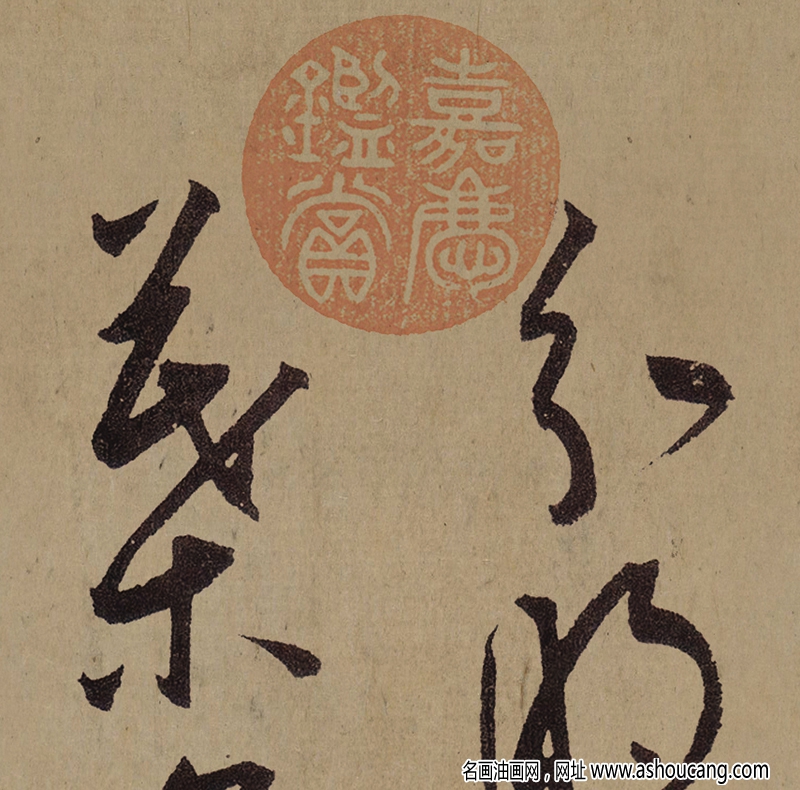 嘉慶
鑑賞
分明
葉
名画油画网，网址 www.ashoucang.com